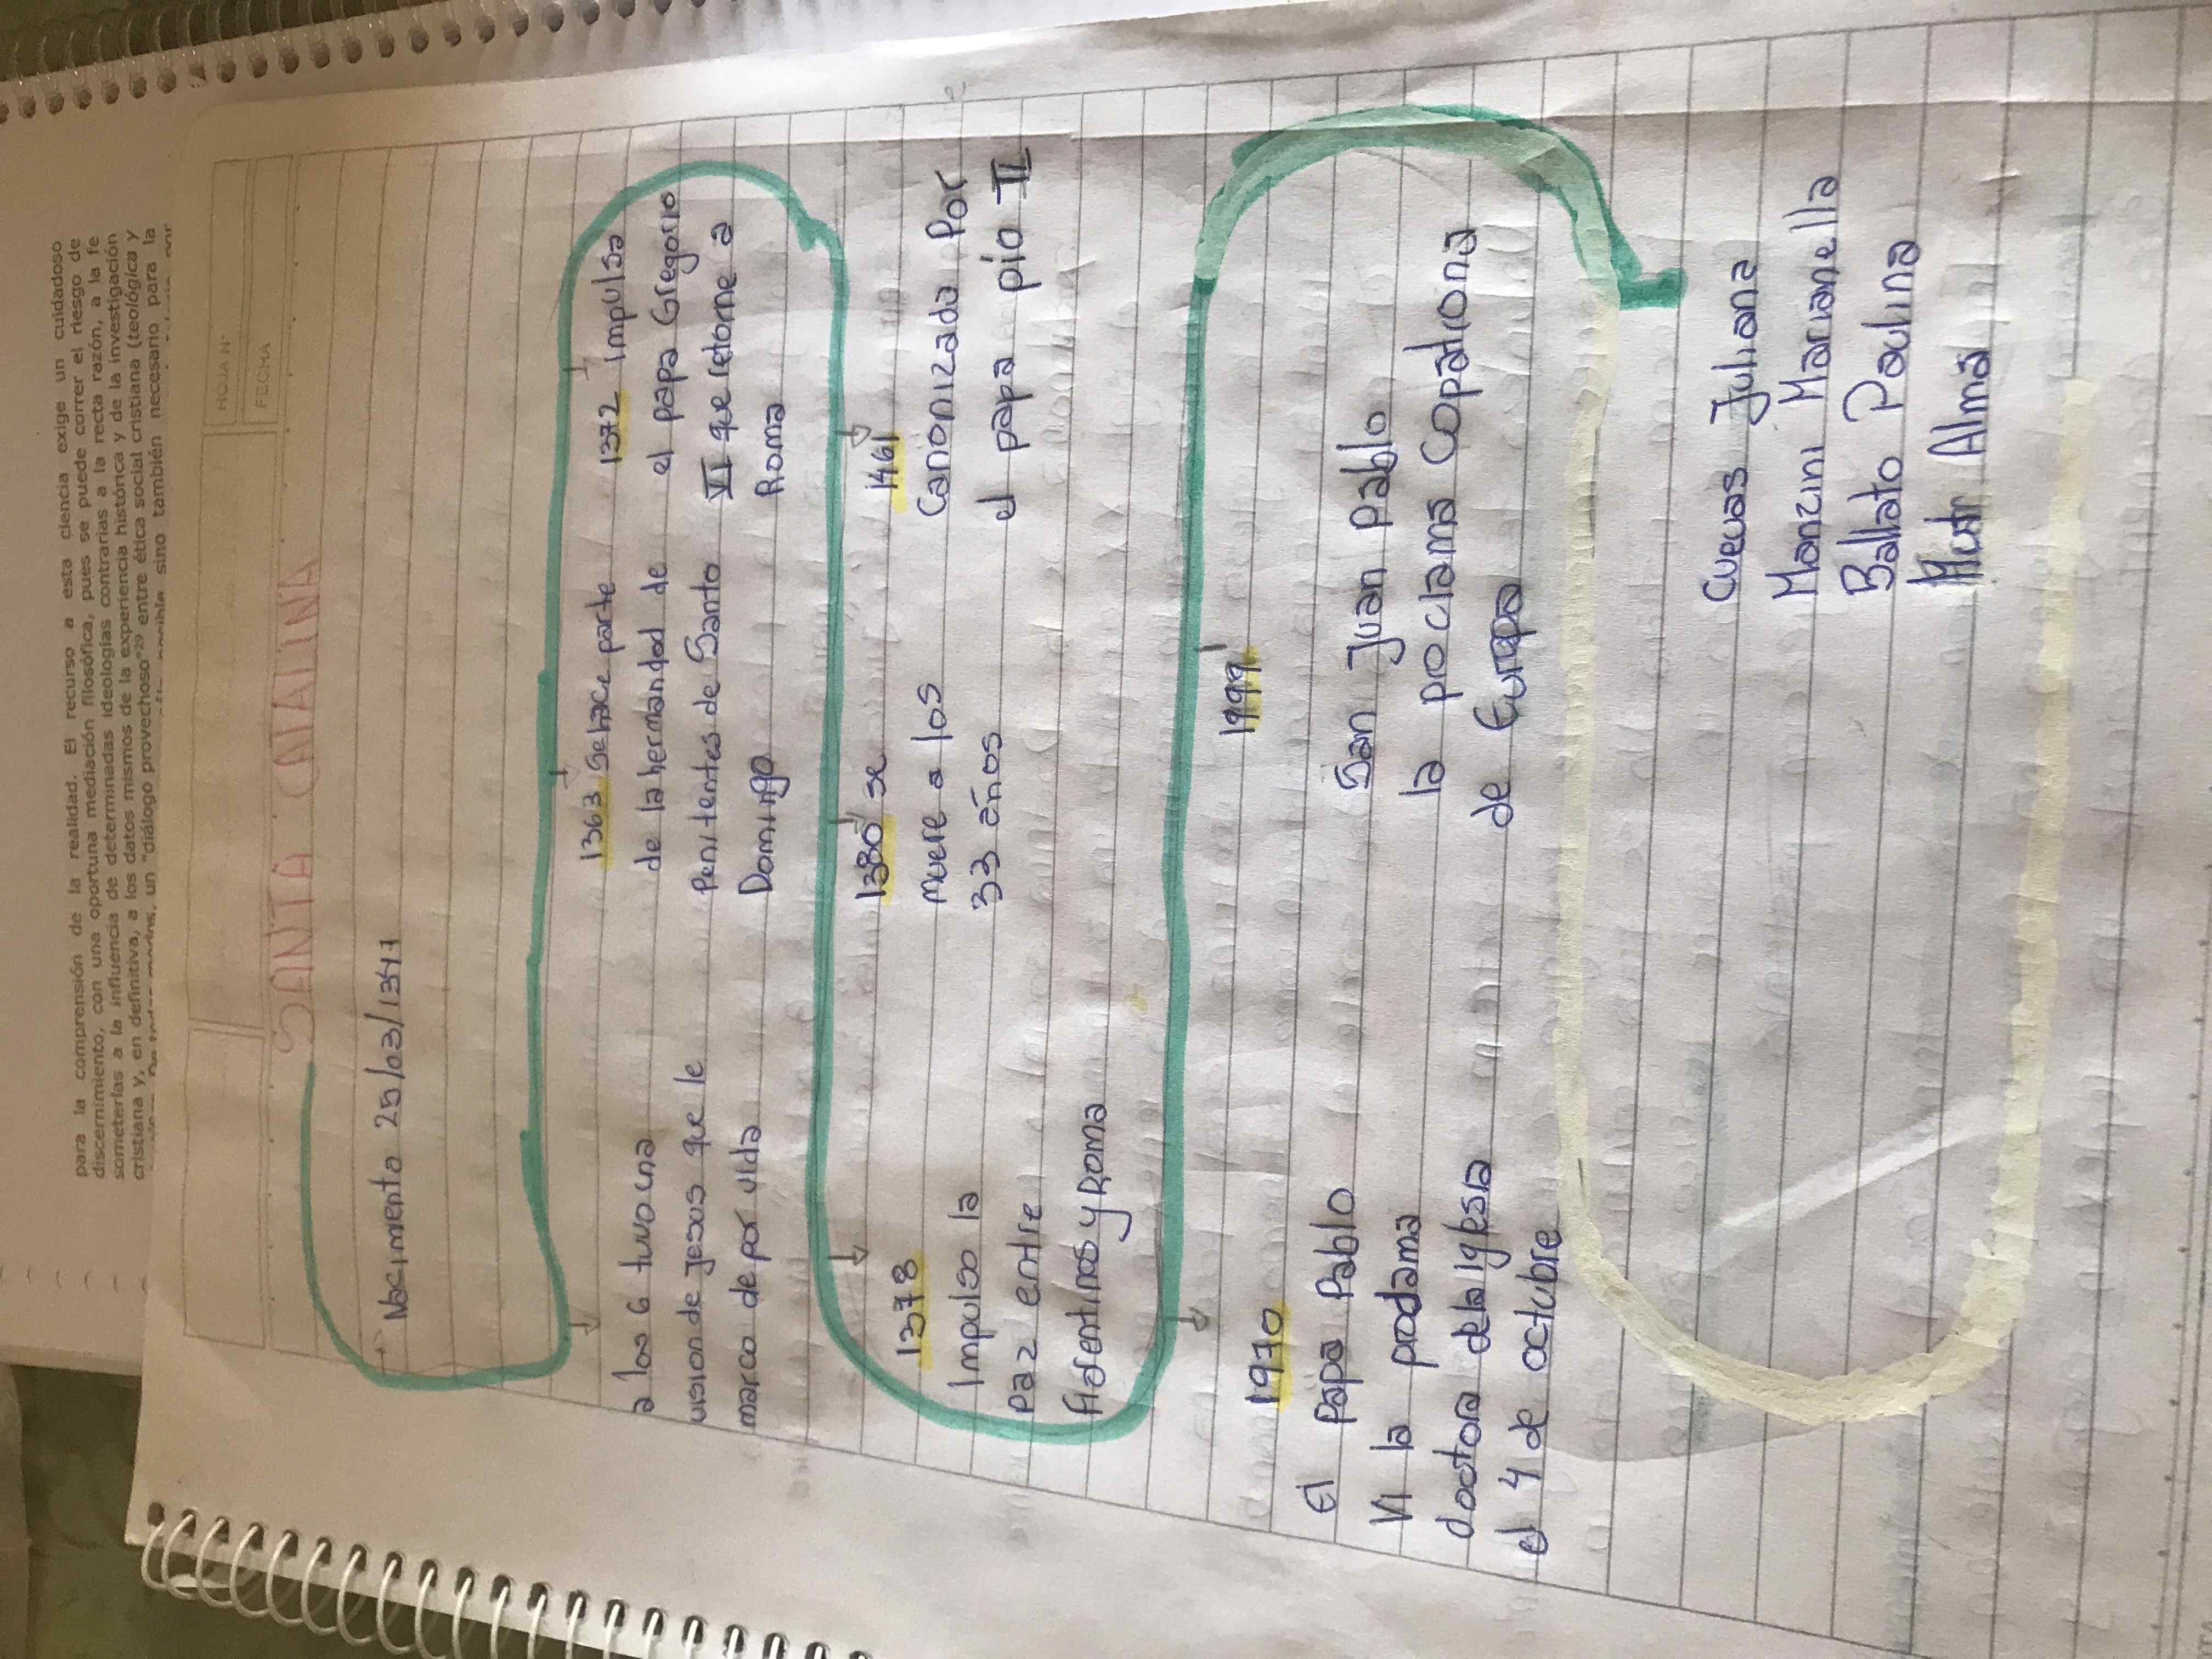 para la comprensión de la realidad. El recurso a esta ciencia exige un cuidadoso
discernimiento, con una oportuna mediación filosófica, pues se puede correr el riesgo de
someterlas a la influencia de determinadas ideologías contrarias a la recta razón, a la fe
cristiana y, en definitiva, a los datos mismos de la experiencia histórica y de la investigación
un "diálogo provechoso"29 entre ética social cristiana (teológica y
sino también necesario para la
HOJA N°
FECHA
SANTA CATALINA
Nacimiento 25/03/1347
a los 6 tuvo una
vision de Jesus que le
marco de por vida
1363 se hace parte
de la hermandad de
Penitentes de Santo
Domingo
1372 impulsa
el papa Gregorio
XI que retorne a
Roma
1378
Impulso la
Paz entre
florentinos y Roma
1380 se
muere a los
33 años
1461
Canonizada Por
el papa pío II
1970
El Papa Pablo
VI la proclama
doctora de la iglesia
el 4 de octubre
1999
San Juan Pablo
la proclama Copatrona
de Europa
Cuevas Juliana
Manzini Marianella
Ballato Paulina
Alma